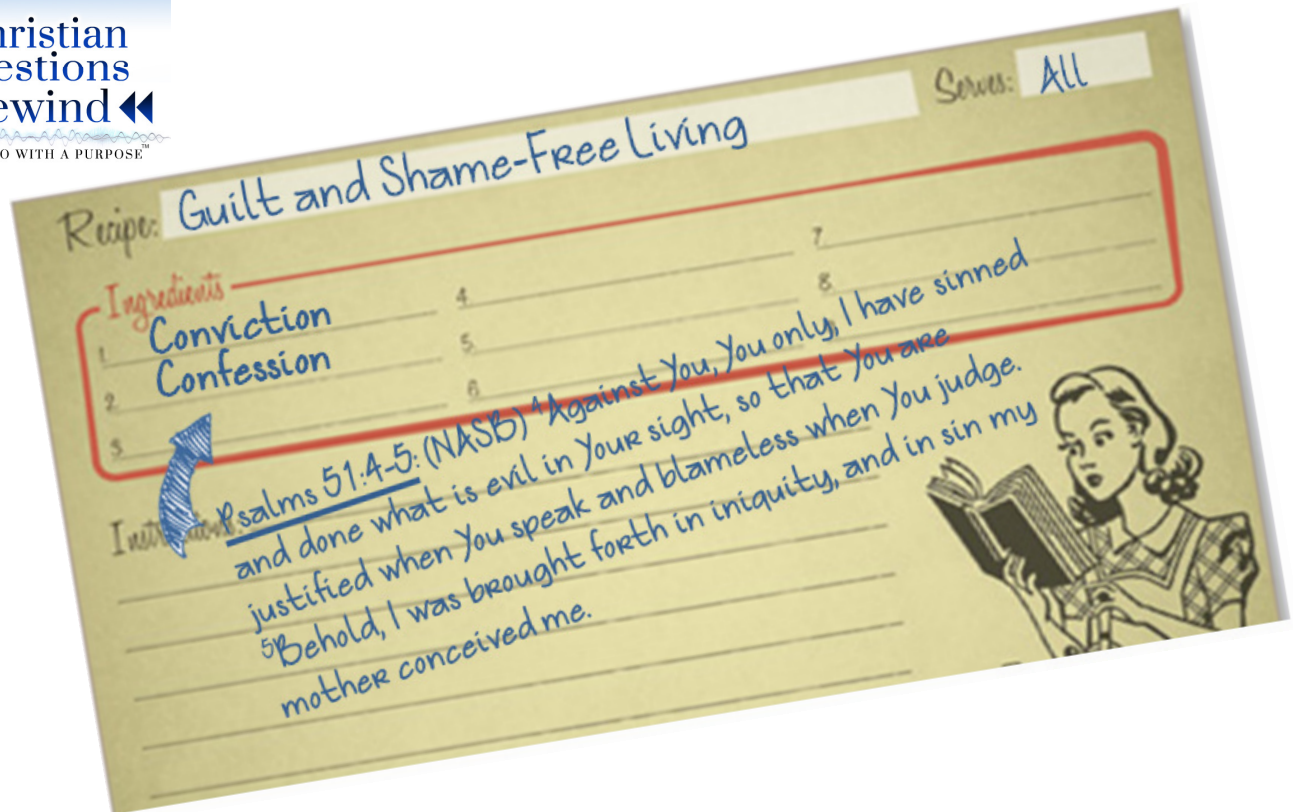 hristian
estions
ewind
O WITH A PURPOSE™
Serves: All
Recipe: Guilt and Shame-Free Living
Ingredients
1. Conviction
2. Confession
3.
4.
5.
6.
7.
8.
Psalms 51:4-5: (NASB) ⁴Against You, You only, I have sinned
and done what is evil in Your sight, so that You are
justified when You speak and blameless when You judge.
⁵Behold, I was brought forth in iniquity, and in sin my
mother conceived me.